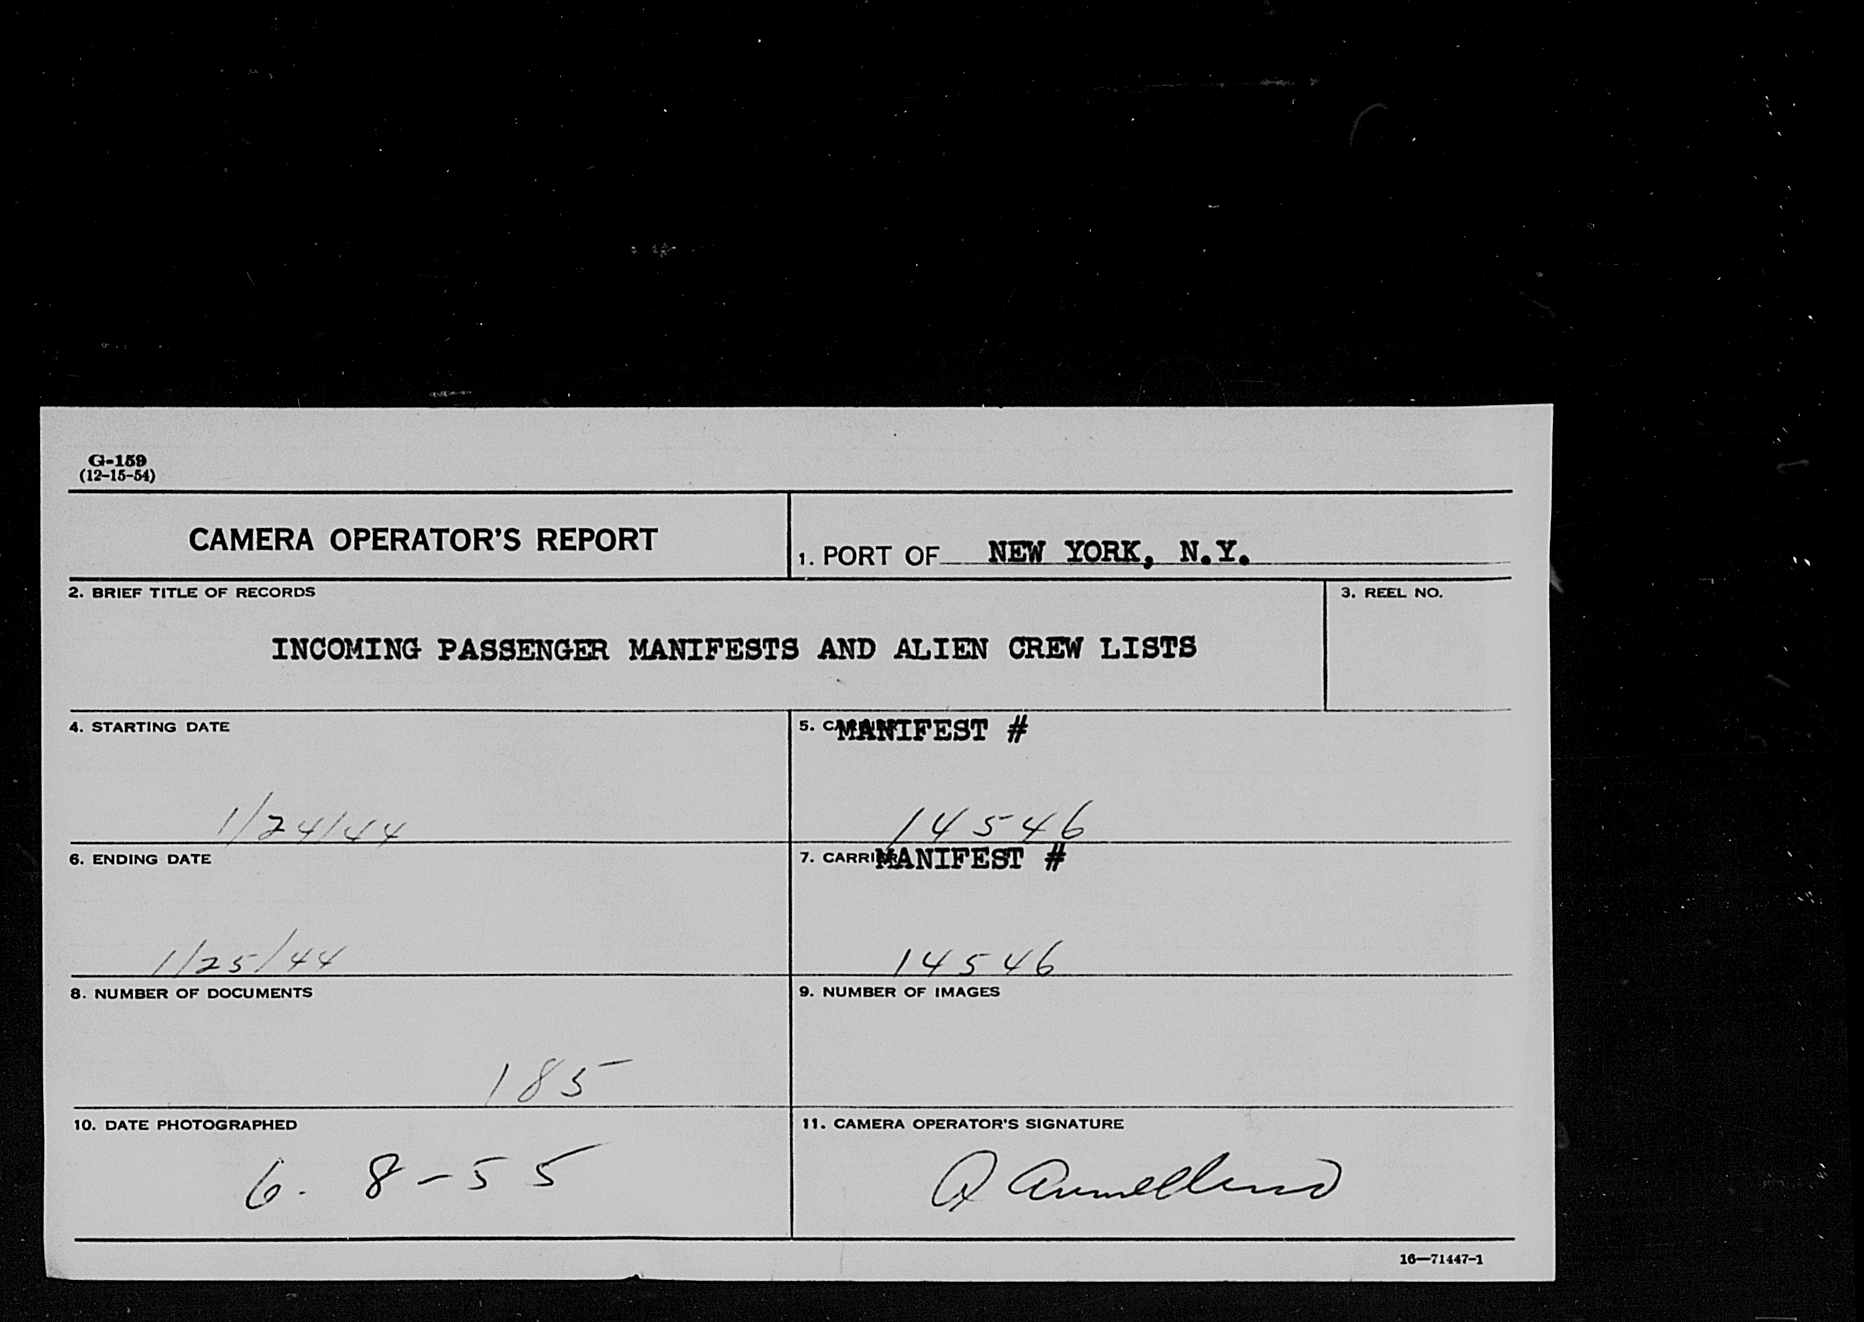 G-159
(12-15-54)
CAMERA OPERATOR'S REPORT
1. PORT OF NEW YORK, N.Y.
2. BRIEF TITLE OF RECORDS
3. REEL NO.
INCOMING PASSENGER MANIFESTS AND ALIEN CREW LISTS
4. STARTING DATE
5. MANIFEST #
1/24/44
14546
6. ENDING DATE
7. CARRIER MANIFEST #
1/25/44
14546
8. NUMBER OF DOCUMENTS
9. NUMBER OF IMAGES
185
10. DATE PHOTOGRAPHED
11. CAMERA OPERATOR'S SIGNATURE
6. 8-55
16—71447-1